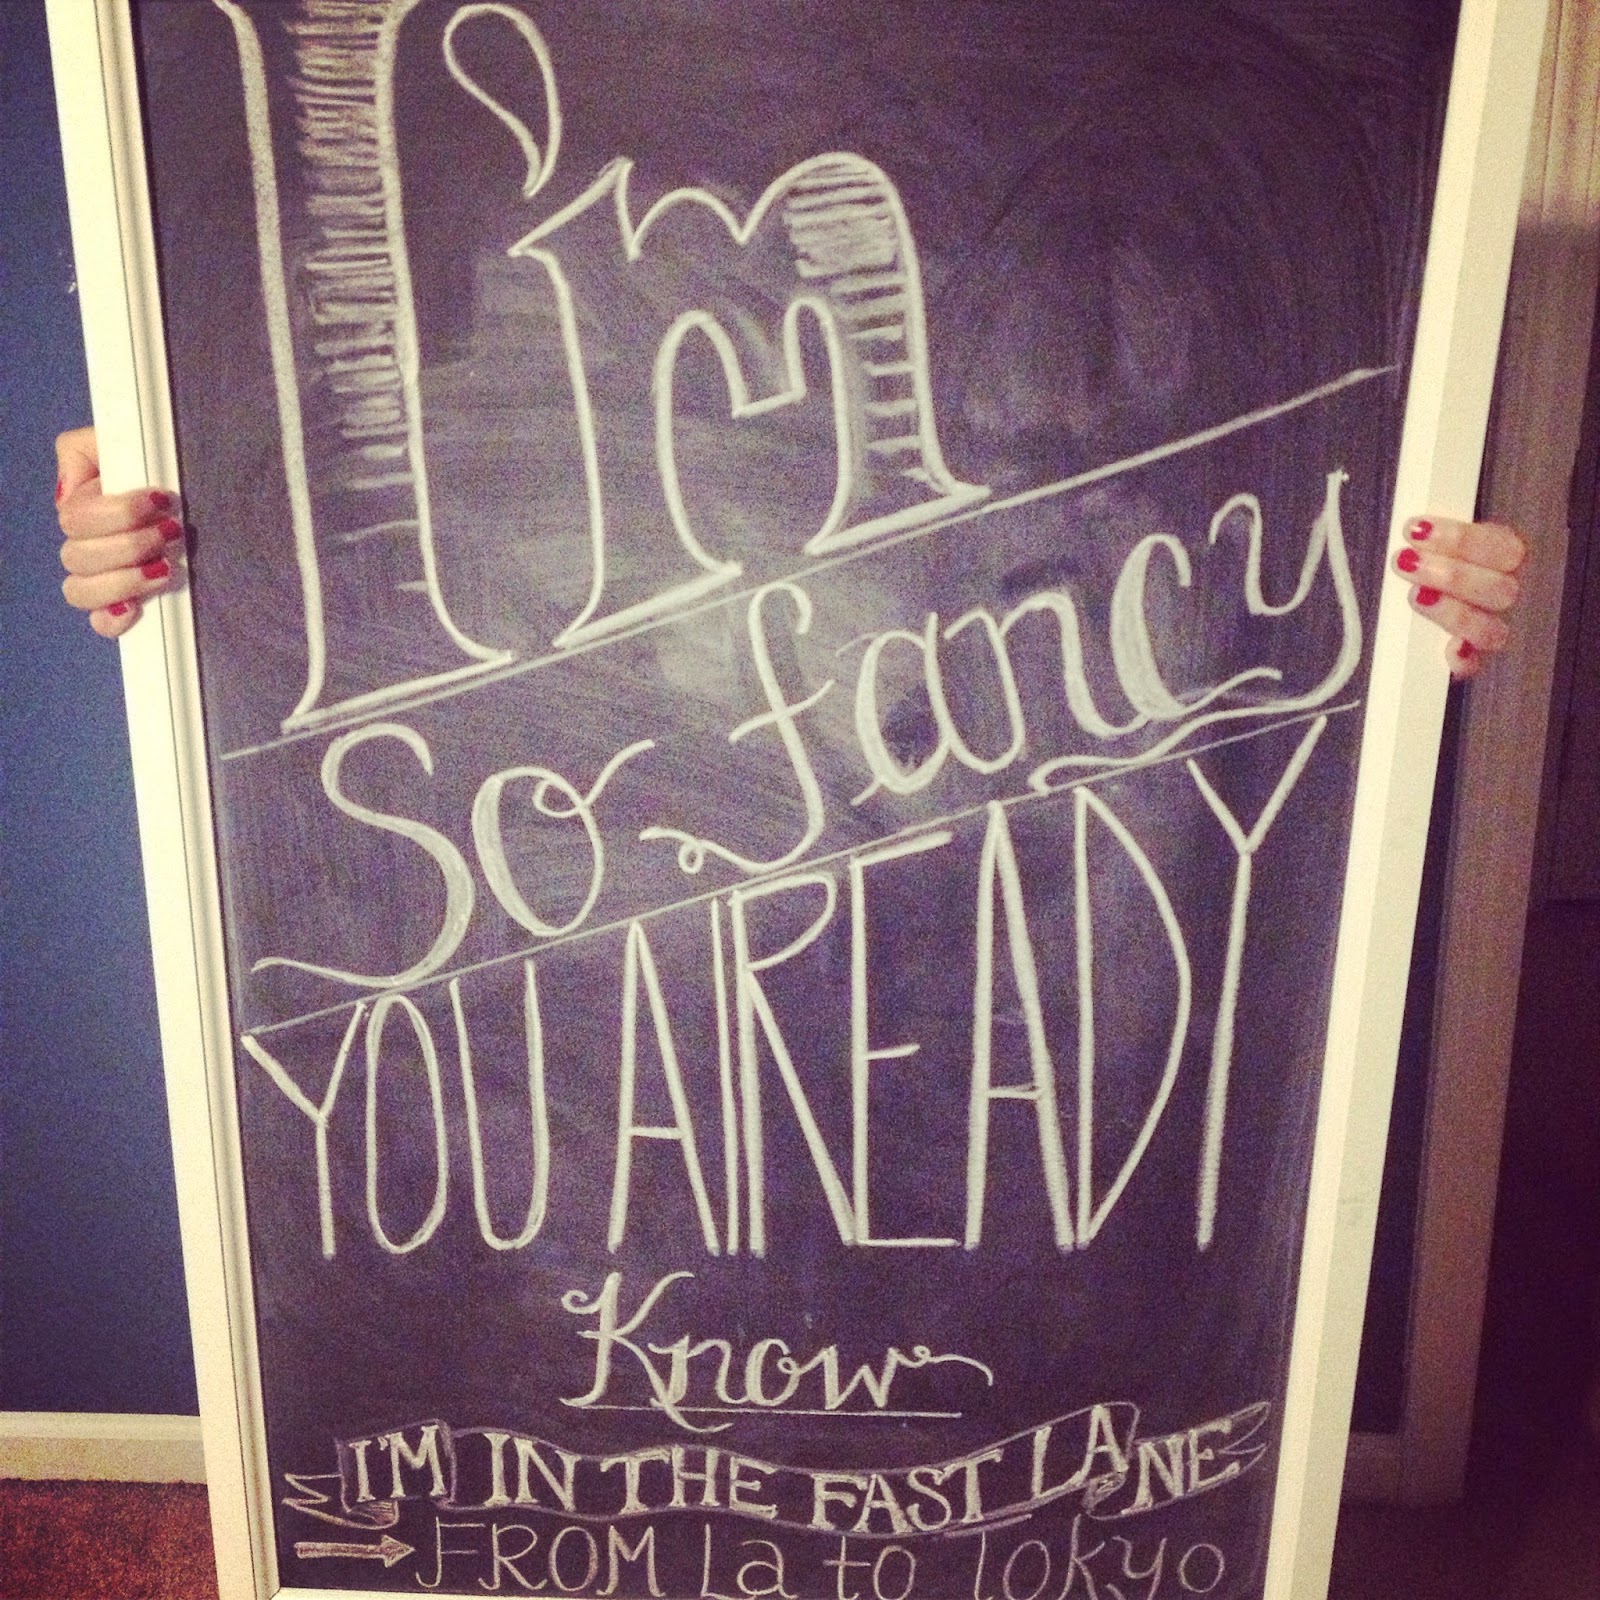 I'm
So fancy
YOU AlREADY
Know
I'M IN THE FAST LANE
FROM La to Tokyo